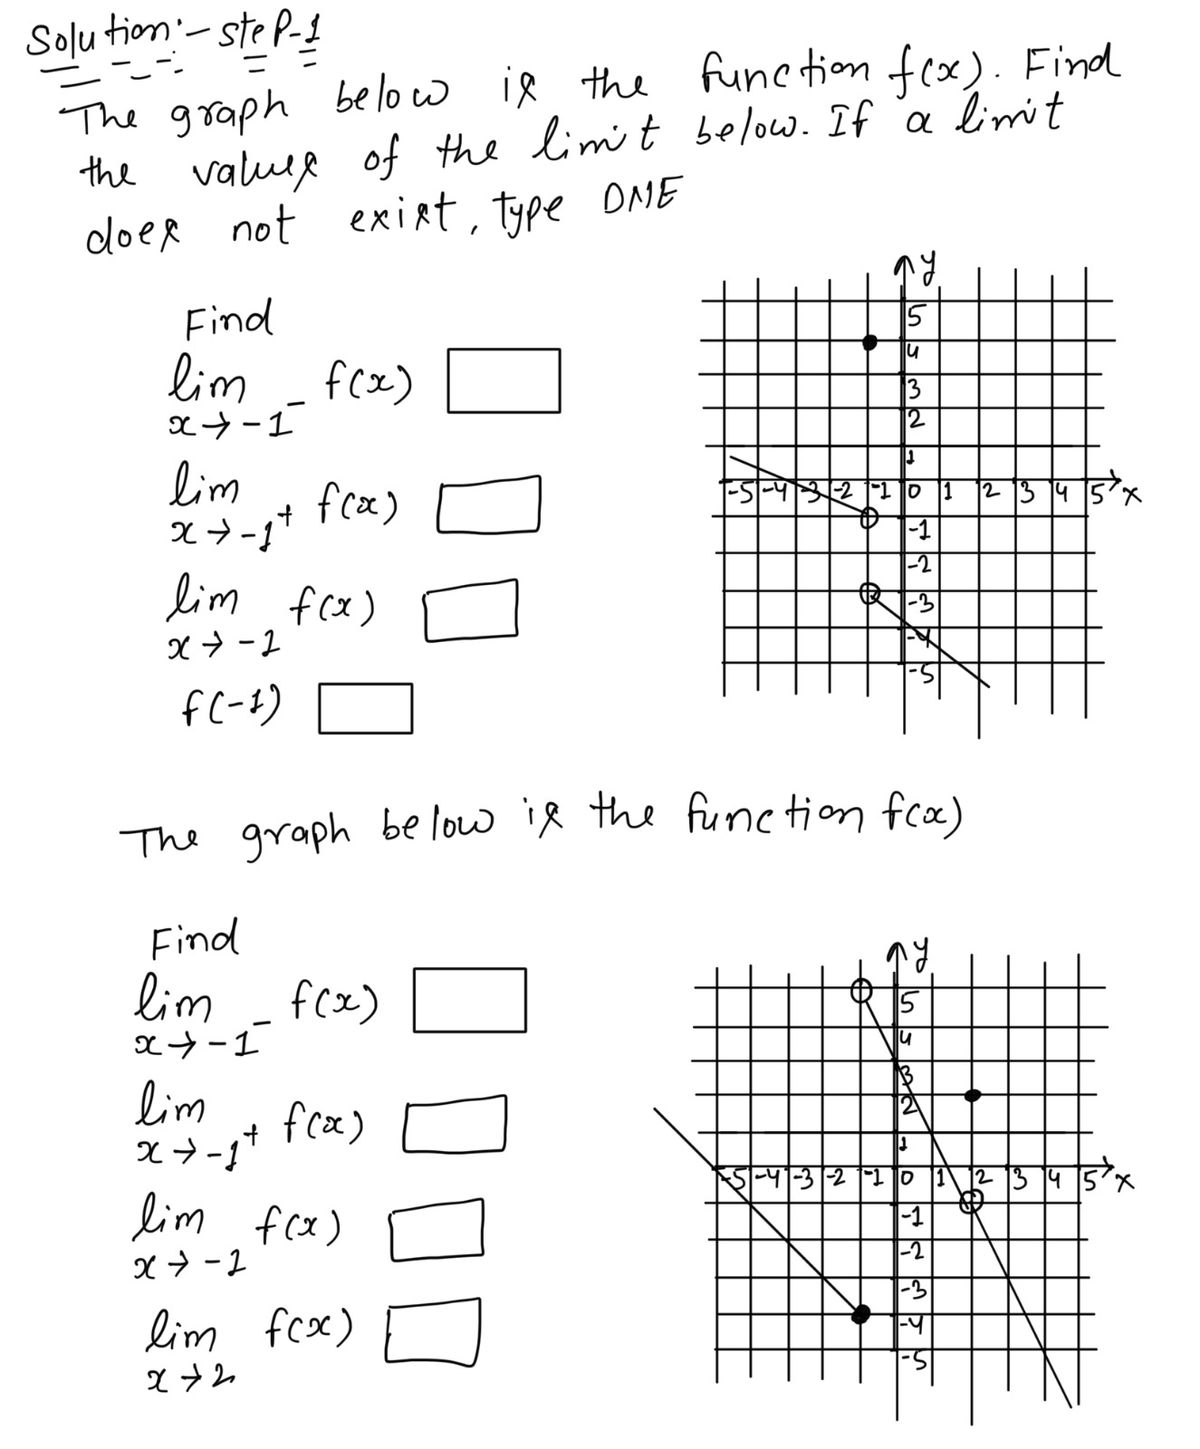 Solution:- step-1
The graph below is the function f(x). Find
the values of the limit below. If a limit
does not exist, type DNE
Find
lim f(x)
x→-1⁻
lim f(x)
x→-1⁺
lim f(x)
x→-1
f(-1)
y
5
4
3
2
1
-5 -4 -3 -2 -1 0 1 2 3 4 5 x
-1
-2
-3
-4
-5
The graph below is the function f(x)
Find
lim f(x)
x→-1⁻
lim f(x)
x→-1⁺
lim f(x)
x→-1
lim f(x)
x→2
y
5
4
3
2
1
-5 -4 -3 -2 -1 0 1 2 3 4 5 x
-1
-2
-3
-4
-5